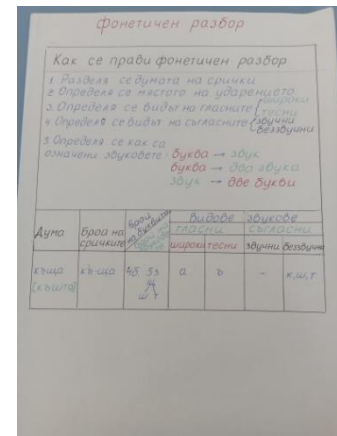 Фонетичен разбор
Как се прави фонетичен разбор
1. Разделя се думата на срички
2. Определя се мястото на ударението
3. Определя се видът на гласните широки
тесни
4. Определя се видът на съгласните звучни
беззвучни
5. Определя се как са
означени звуковете: буква → звук
буква → два звука
звук → две букви
Дума
Брой на
сричките
Брой
на буквите
Видове звукове
гласни съгласни
широки тесни звучни беззвучни
къща къ-ща 4б 5з а ъ - к,ш,т
(къшта) щ
ш т